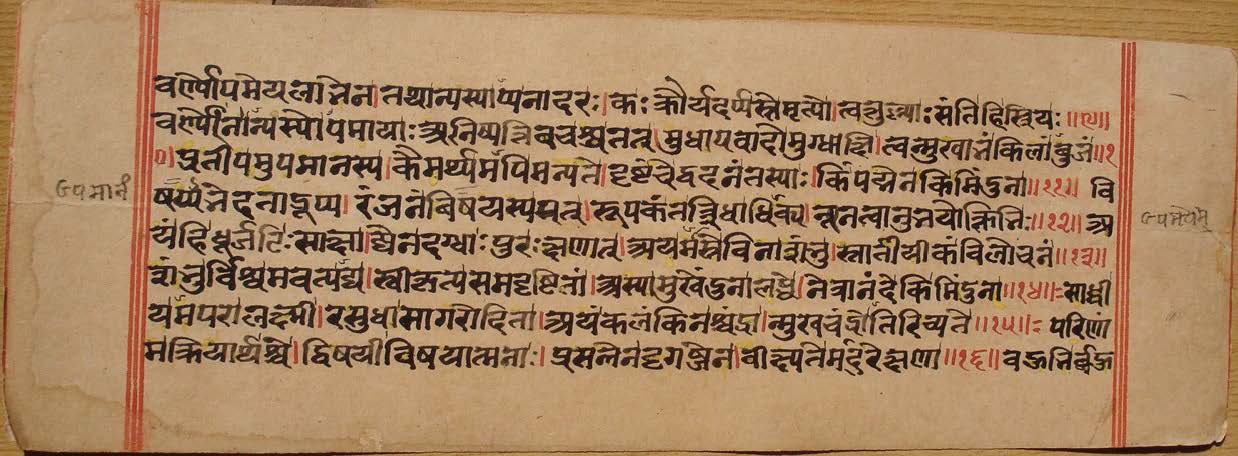 वर्ण्योपमेयलाभेन।तथान्यस्याप्यनादरः।कः क्रौर्यदर्प्पस्तेमृत्यो।त्वत्तुल्याः संतिहिस्त्रियः॥१९॥
वर्ण्येनान्यस्योपमायाः अनिष्पत्तिवचश्चतत्।मुधापवादोमुग्धाक्षि।त्वन्मुखाभंकिलांबुजं॥२
०।प्रतीपमुपमानस्य।कैमर्थ्यमपिमन्यते।दृष्टंचेद्वदनंतस्याः।किंपद्मेनकिमिंदुना॥२१॥ वि
षय्यभेदताद्रूप्य।रंजनंविषयस्ययत्।रूपकंतत्त्रिधाधिक्य।न्यूनत्वानुभयोक्तिभिः॥२२॥ अ
यंहिधूर्जटिः साक्षा।द्येनदग्धाः पुरः क्षणात्।अयमास्तेविनाशंभु।स्तार्तीयीकंविलोचनं॥२३॥
शंभुर्विश्वमवत्यद्य।स्वीकृत्यसमदृष्टितां।अस्यामुखेंदुनालब्धे।नेत्रानंदेकिमिंदुना॥२४॥ साध्वी
यमपरालक्ष्मी।रसुधासागरोदिता।अयंकलंकिनश्चंद्रा।न्मुखचंद्रोतिरिच्यते॥२५॥ परिणा
मक्रियार्थश्चे।द्विषयीविषयात्मना।प्रसन्नेनदृगब्जेन।वीक्ष्यतेमदिरेक्षणा॥२६॥ बहुभिर्बहु
उपमानं
उपमेयम्